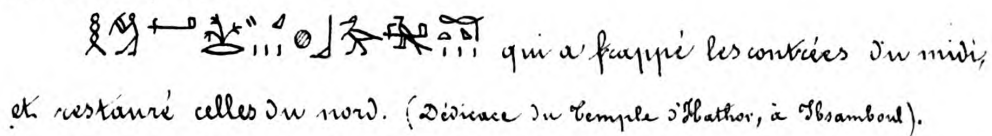 qui a frappé les contrées du midi,
et restauré celles du nord. (Dédicace du Temple d'Hathor, à Ibsamboul).